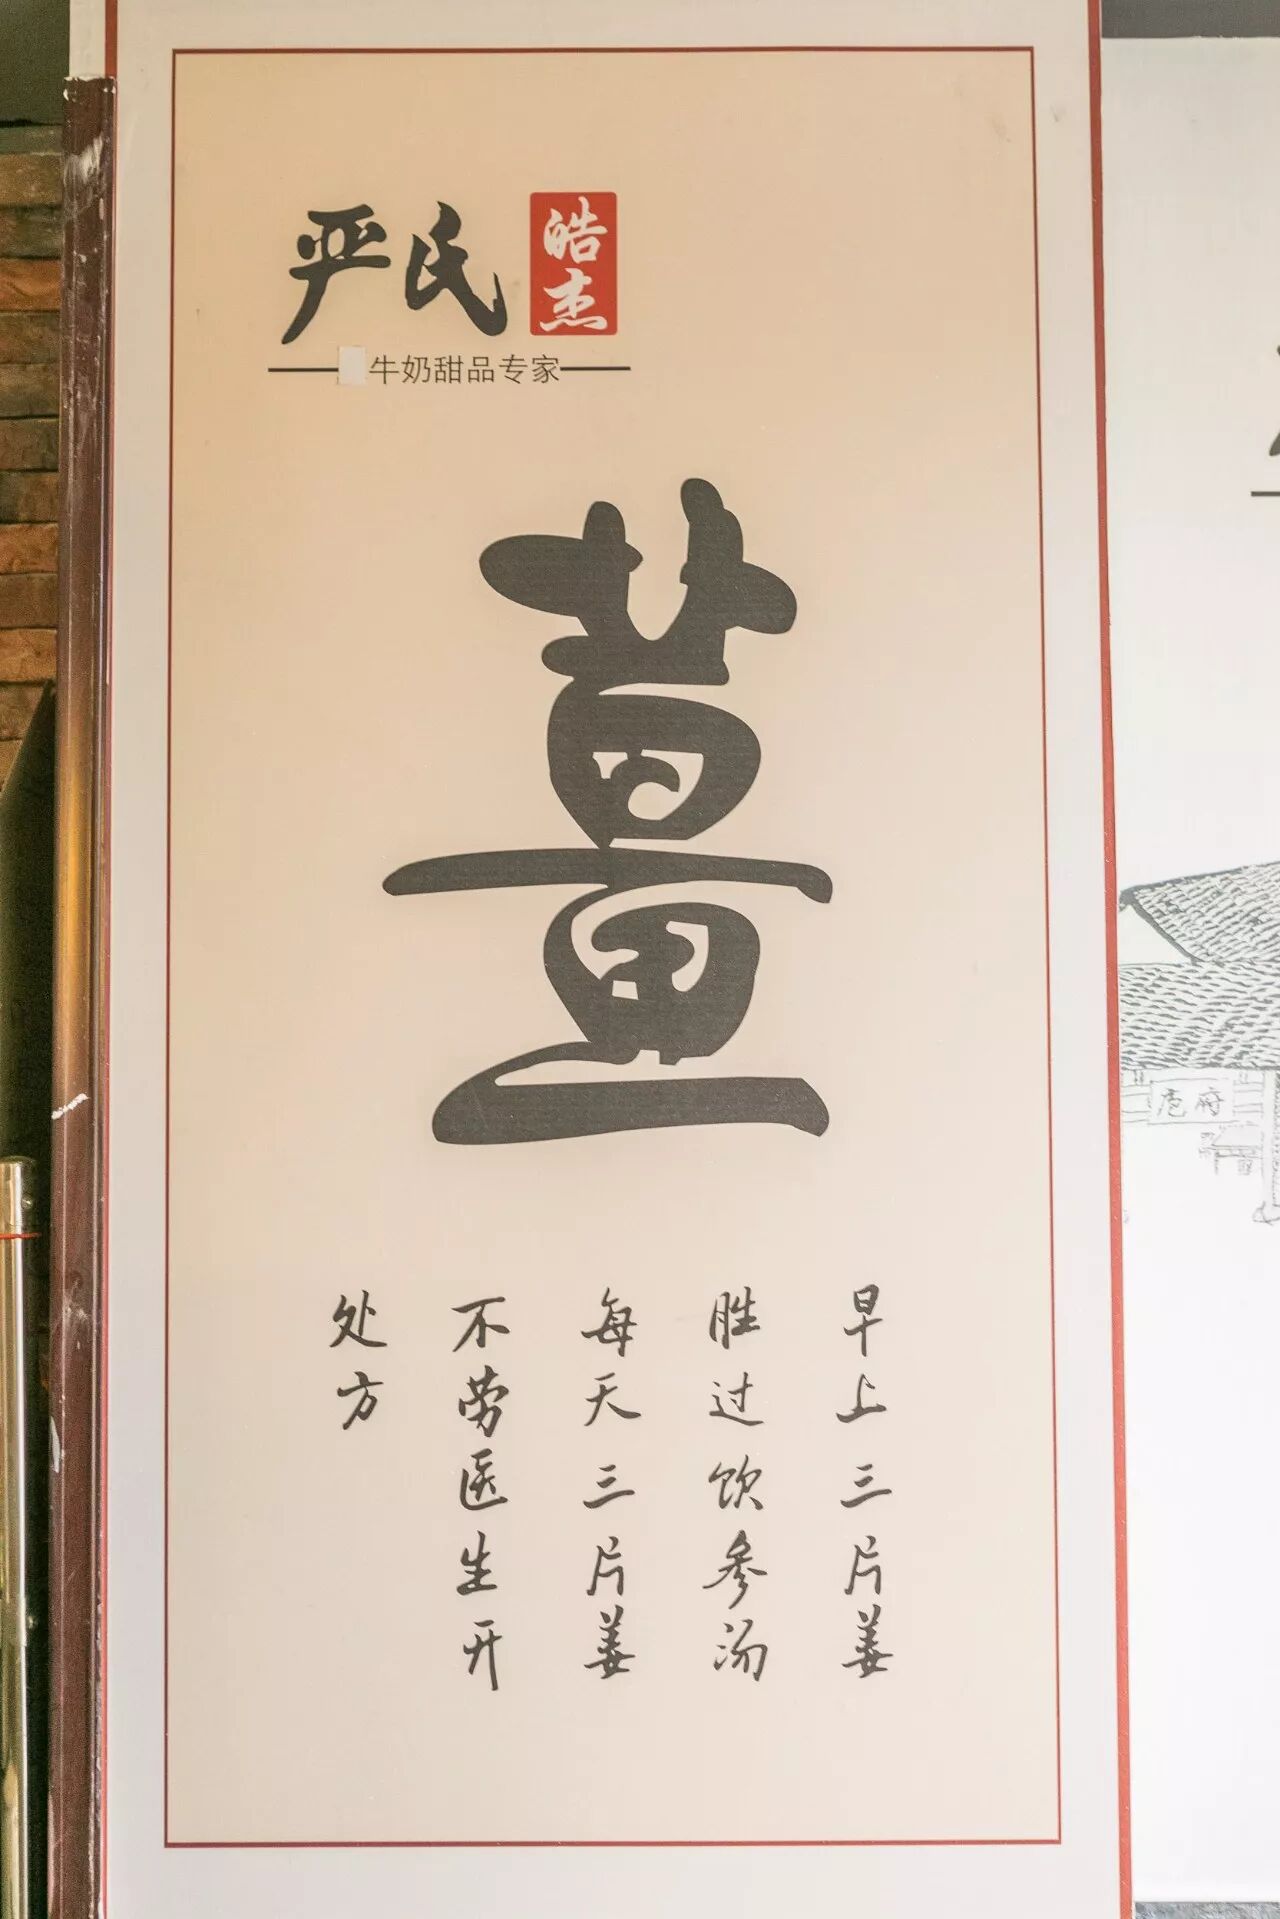 严氏
皓杰
牛奶甜品专家
薑
早上三片姜
胜过饮参汤
每天三片姜
不劳医生开
处方
府